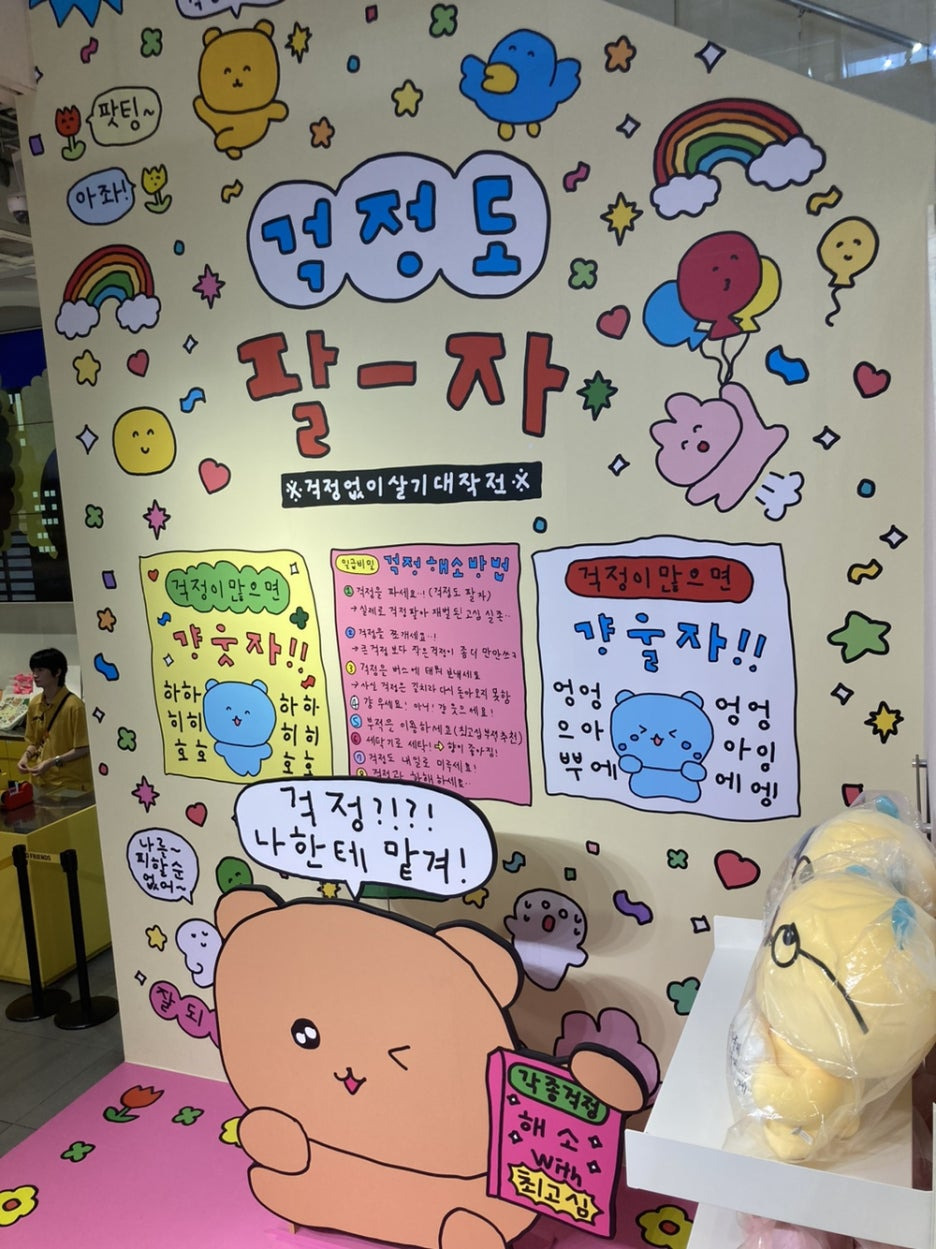 팟팅~
아좌!
걱정도
팔-자
※걱정없이살기대작전※
걱정이많으면
걍웃자!!
하하
히히
호호
하하
히히
호호
일급비밀
걱정해소방법
1 걱정을 파세요..! (걱정도 팔자)
→실제로 걱정팔아 재벌된 고심 실존..
2 걱정을 쪼개세요..!
→큰 걱정 보다 작은걱정이 좀 더 만만쓰ㅋ
3 걱정은 버스에 태워 보내세요
→사실 걱정은 김치라 다시 돌아오지 못함
4 걍 우세요! 아니! 걍 웃으세요!
5 부적을 이용하세요(최고심부적추천)
6 세탁기로 세탁!⇨향기 좋아짐!
7 걱정도 내일로 미루세요!
8 걱정과 화해하세요..
걱정이많으면
걍울자!!
엉엉
으아
뿌에
엉엉
아잉
에엥!
걱정?!?!
나한테 맡겨!
나를~
피할순
없어~
FRIENDS
잘되
각종걱정
해소
with
최고심